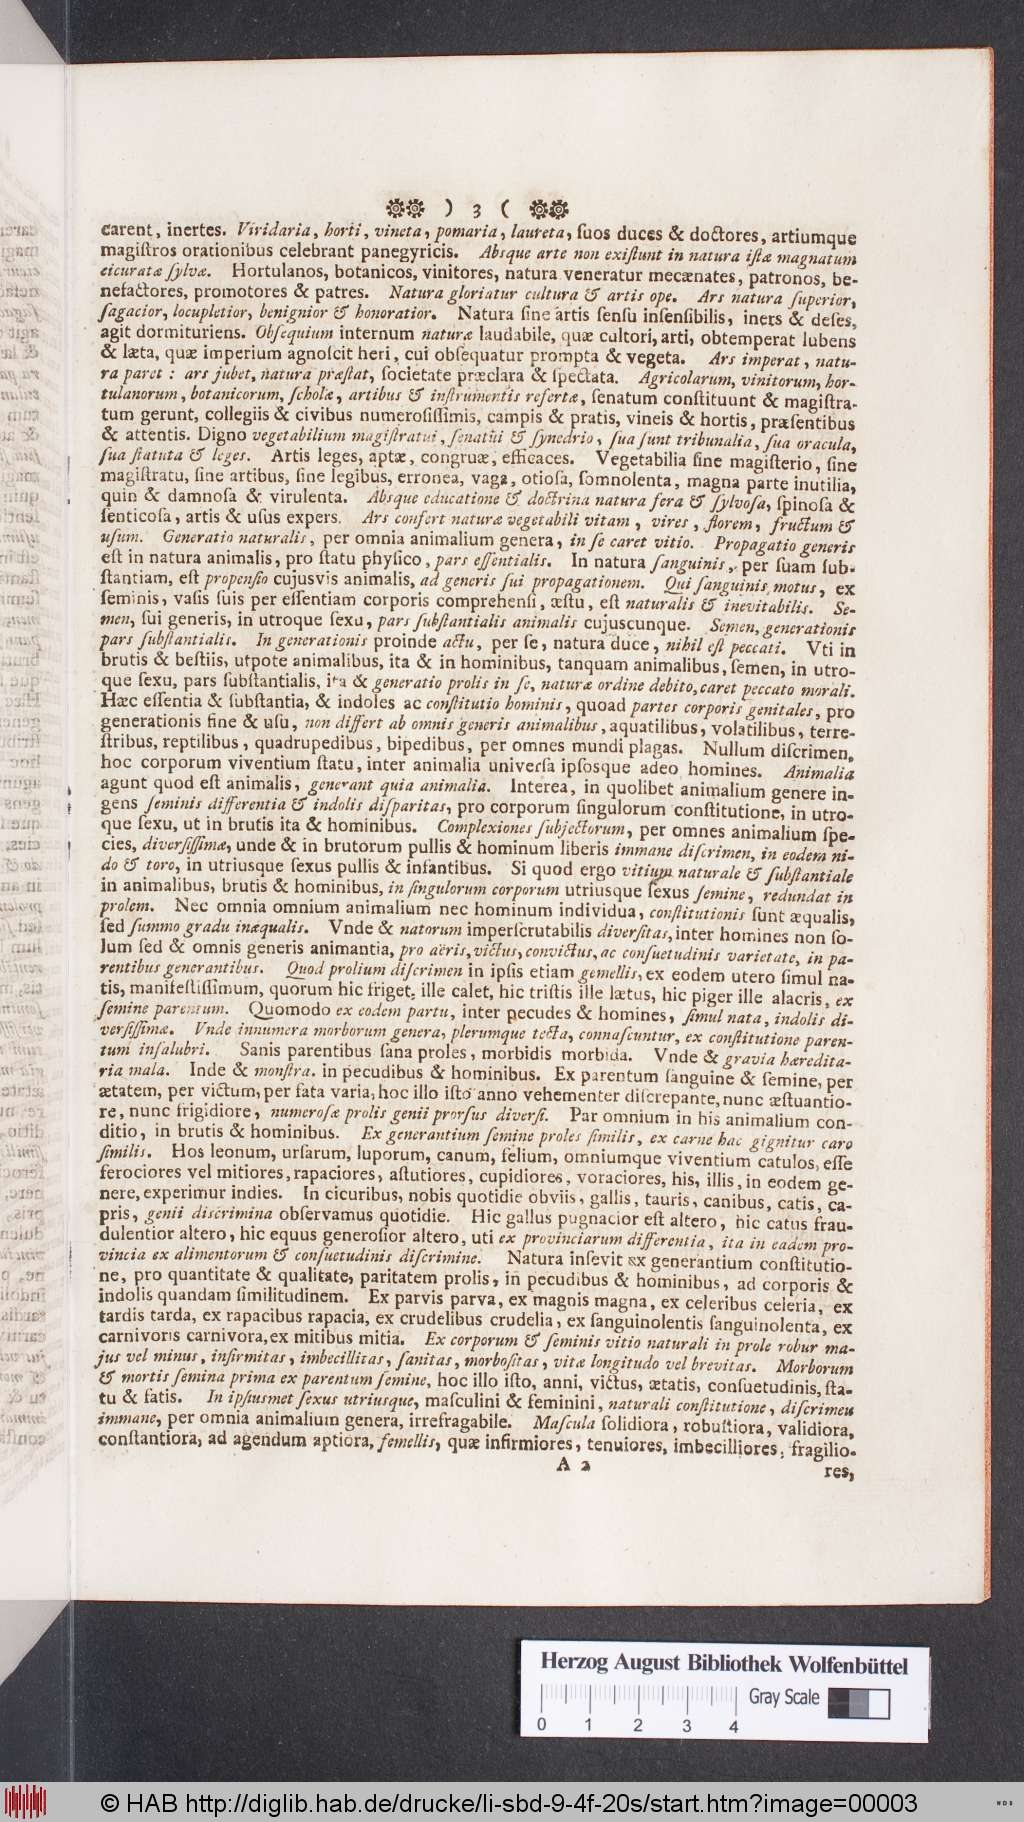 ❁❁ ) 3 ( ❁❁
carent, inertes. Viridaria, horti, vineta, pomaria, laureta, ſuos duces & doctores, artiumque
magiſtros orationibus celebrant panegyricis. Absque arte non exiſtunt in natura iſtæ magnatum
cicuratæ ſylvæ. Hortulanos, botanicos, vinitores, natura veneratur mecænates, patronos, be-
nefactores, promotores & patres. Natura gloriatur cultura & artis ope. Ars natura ſuperior,
ſagacior, locupletior, benignior & honoratior. Natura ſine artis ſenſu inſenſibilis, iners & deſes,
agit dormituriens. Obſequium internum naturæ laudabile, quæ cultori, arti, obtemperat lubens
& læta, quæ imperium agnoſcit heri, cui obſequatur prompta & vegeta. Ars imperat, natu-
ra paret : ars jubet, natura præſtat, ſocietate præclara & ſpectata. Agricolarum, vinitorum, hor-
tulanorum, botanicorum, ſcholæ, artibus & inſtrumentis refertæ, ſenatum conſtituunt & magiſtra-
tum gerunt, collegiis & civibus numeroſiſſimis, campis & pratis, vineis & hortis, præſentibus
& attentis. Digno vegetabilium magiſtratui, ſenatui & ſynedrio, ſua ſunt tribunalia, ſua oracula,
ſua ſtatuta & leges. Artis leges, aptæ, congruæ, efficaces. Vegetabilia ſine magiſterio, ſine
magiſtratu, ſine artibus, ſine legibus, erronea, vaga, otioſa, ſomnolenta, magna parte inutilia,
quin & damnoſa & virulenta. Absque educatione & doctrina natura fera & ſylvoſa, ſpinoſa &
ſenticoſa, artis & uſus expers. Ars confert naturæ vegetabili vitam, vires, florem, fructum &
uſum. Generatio naturalis, per omnia animalium genera, in ſe caret vitio. Propagatio generis
eſt in natura animalis, pro ſtatu phyſico, pars eſſentialis. In natura ſanguinis, per ſuam ſub-
ſtantiam, eſt propenſio cujusvis animalis, ad generis ſui propagationem. Qui ſanguinis motus, ex
ſeminis, vaſis ſuis per eſſentiam corporis comprehenſi, æſtu, eſt naturalis & inevitabilis. Se-
men, ſui generis, in utroque ſexu, pars ſubſtantialis animalis cujuscunque. Semen, generationis
pars ſubſtantialis. In generationis proinde actu, per ſe, natura duce, nihil eſt peccati. Vti in
brutis & beſtiis, utpote animalibus, ita & in hominibus, tanquam animalibus, ſemen, in utro-
que ſexu, pars ſubſtantialis, ita & generatio prolis in ſe, naturæ ordine debito, caret peccato morali.
Hæc eſſentia & ſubſtantia, & indoles ac conſtitutio hominis, quoad partes corporis genitales, pro
generationis fine & uſu, non differt ab omnis generis animalibus, aquatilibus, volatilibus, terre-
ſtribus, reptilibus, quadrupedibus, bipedibus, per omnes mundi plagas. Nullum diſcrimen,
hoc corporum viventium ſtatu, inter animalia univerſa ipſosque adeo homines. Animalia
agunt quod eſt animalis, generant quia animalia. Interea, in quolibet animalium genere in-
gens ſeminis differentia & indolis diſparitas, pro corporum ſingulorum conſtitutione, in utro-
que ſexu, ut in brutis ita & hominibus. Complexiones ſubjectorum, per omnes animalium ſpe-
cies, diverſiſſimæ, unde & in brutorum pullis & hominum liberis immane diſcrimen, in eodem ni-
do & toro, in utriusque ſexus pullis & infantibus. Si quod ergo vitium naturale & ſubſtantiale
in animalibus, brutis & hominibus, in ſingulorum corporum utriusque ſexus ſemine, redundat in
prolem. Nec omnia omnium animalium nec hominum individua, conſtitutionis ſunt æqualis,
ſed ſummo gradu inæqualis. Vnde & natorum imperſcrutabilis diverſitas, inter homines non ſo-
lum ſed & omnis generis animantia, pro aëris, victus, convictus, ac conſuetudinis varietate, in pa-
rentibus generantibus. Quod prolium diſcrimen in ipſis etiam gemellis, ex eodem utero ſimul na-
tis, manifeſtiſſimum, quorum hic friget, ille calet, hic triſtis ille lætus, hic piger ille alacris, ex
ſemine parentum. Quomodo ex eodem partu, inter pecudes & homines, ſimul nata, indolis di-
verſiſſimæ. Vnde innumera morborum genera, plerumque tecta, connaſcuntur, ex conſtitutione paren-
tum inſalubri. Sanis parentibus ſana proles, morbidis morbida. Vnde & gravia hæredita-
ria mala. Inde & monſtra. in pecudibus & hominibus. Ex parentum ſanguine & ſemine, per
ætatem, per victum, per fata varia, hoc illo iſto anno vehementer diſcrepante, nunc æſtuantio-
re, nunc frigidiore, numeroſæ prolis genii prorſus diverſi. Par omnium in his animalium con-
ditio, in brutis & hominibus. Ex generantium ſemine proles ſimilis, ex carne hac gignitur caro
ſimilis. Hos leonum, urſarum, luporum, canum, felium, omniumque viventium catulos, eſſe
ferociores vel mitiores, rapaciores, aſtutiores, cupidiores, voraciores, his, illis, in eodem ge-
nere, experimur indies. In cicuribus, nobis quotidie obviis, gallis, tauris, canibus, catis, ca-
pris, genii discrimina obſervamus quotidie. Hic gallus pugnacior eſt altero, hic catus frau-
dulentior altero, hic equus generoſior altero, uti ex provinciarum differentia, ita in eadem pro-
vincia ex alimentorum & conſuetudinis diſcrimine. Natura inſevit ex generantium conſtitutio-
ne, pro quantitate & qualitate, paritatem prolis, in pecudibus & hominibus, ad corporis &
indolis quandam ſimilitudinem. Ex parvis parva, ex magnis magna, ex celeribus celeria, ex
tardis tarda, ex rapacibus rapacia, ex crudelibus crudelia, ex ſanguinolentis ſanguinolenta, ex
carnivoris carnivora, ex mitibus mitia. Ex corporum & ſeminis vitio naturali in prole robur ma-
jus vel minus, infirmitas, imbecillitas, ſanitas, morboſitas, vitæ longitudo vel brevitas. Morborum
& mortis ſemina prima ex parentum ſemine, hoc illo iſto, anni, victus, ætatis, conſuetudinis, ſta-
tu & fatis. In ipſiusmet ſexus utriusque, maſculini & feminini, naturali conſtitutione, diſcrimen
immane, per omnia animalium genera, irrefragabile. Maſcula ſolidiora, robuſtiora, validiora,
conſtantiora, ad agendum aptiora, femellis, quæ infirmiores, tenuiores, imbecilliores, fragilio-
A 2 res,
Herzog August Bibliothek Wolfenbüttel
Gray Scale
0 1 2 3 4
© HAB http://diglib.hab.de/drucke/li-sbd-9-4f-20s/start.htm?image=00003